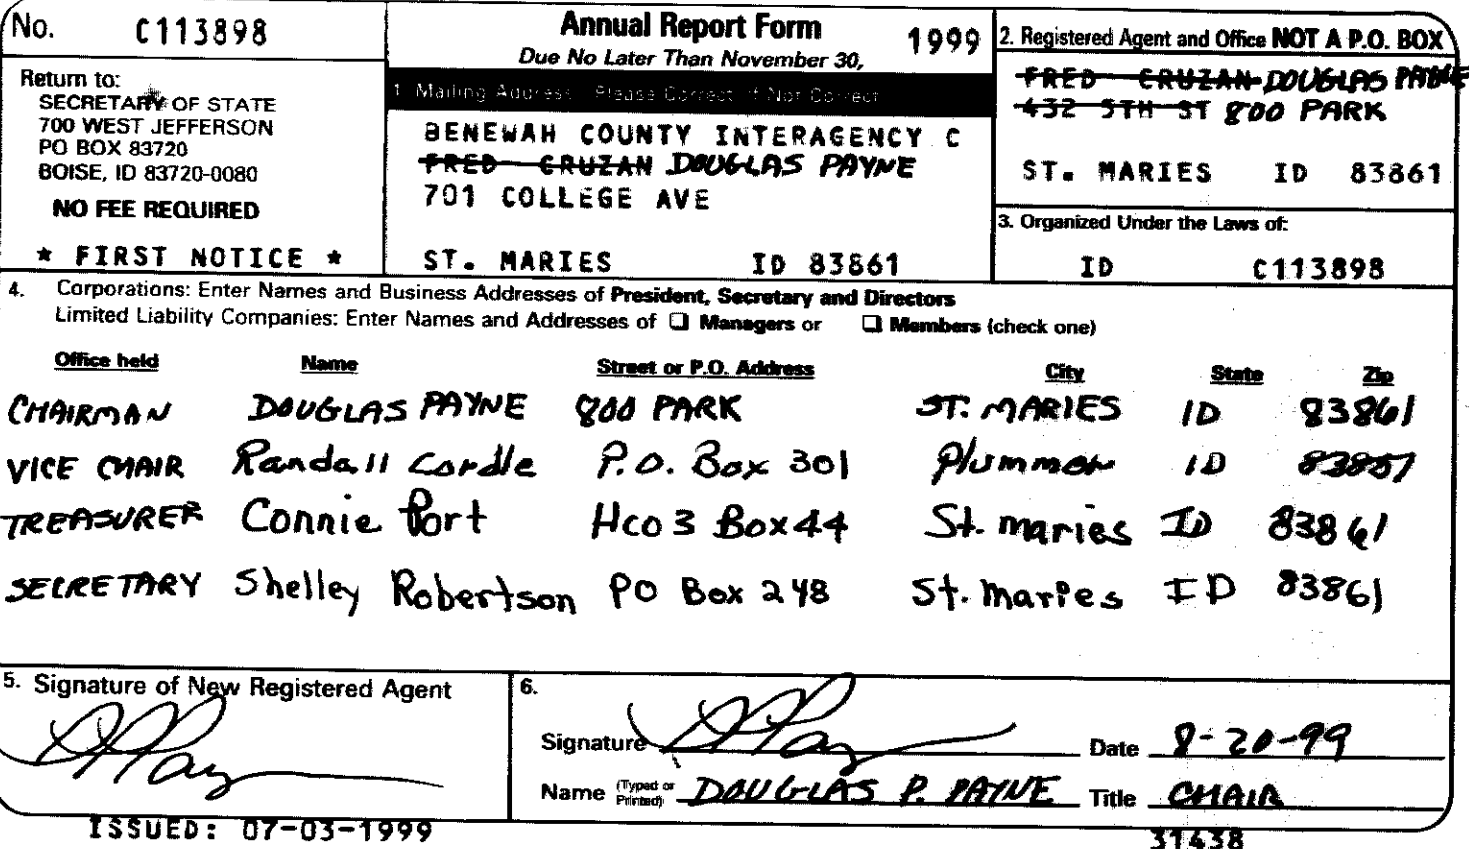 No. C113898
Return to:
SECRETARY OF STATE
700 WEST JEFFERSON
PO BOX 83720
BOISE, ID 83720-0080
NO FEE REQUIRED
* FIRST NOTICE *
Annual Report Form 1999
Due No Later Than November 30,
1. Mailing Address: Please Correct If Not Correct
BENEWAH COUNTY INTERAGENCY C
FRED CRUZAN DOUGLAS PAYNE
701 COLLEGE AVE
ST. MARIES ID 83861
2. Registered Agent and Office NOT A P.O. BOX
FRED CRUZAN DOUGLAS PAYNE
432 5TH ST 800 PARK
ST. MARIES ID 83861
3. Organized Under the Laws of:
ID C113898
4. Corporations: Enter Names and Business Addresses of President, Secretary and Directors
Limited Liability Companies: Enter Names and Addresses of ☐ Managers or ☐ Members (check one)
Office held Name Street or P.O. Address City State Zip
CHAIRMAN DOUGLAS PAYNE 800 PARK ST. MARIES ID 83861
VICE CHAIR Randall Cordle P.O. Box 301 Plummer ID
TREASURER Connie Port HCO 3 Box 44 St. maries ID 83861
SECRETARY Shelley Robertson PO Box 248 St. Maries ID 83861
5. Signature of New Registered Agent
6.
Signature Date 8-20-99
Name (Typed or Printed) DOUGLAS P. PAYNE Title CHAIR
ISSUED: 07-03-1999
31438